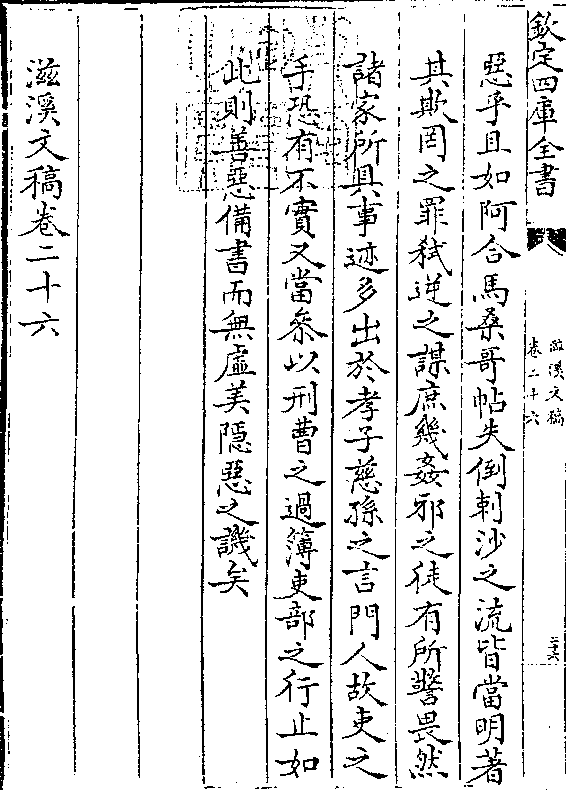 欽定四庫全書
滋溪文稿
卷二十六
二十六
惡乎且如阿合馬桑哥帖失倒剌沙之流皆當明著
其欺罔之罪弑逆之謀庶幾姦邪之徒有所警畏然
諸家所具事迹多出於孝子慈孫之言門人故吏之
手恐有不實又當叅以刑曹之過簿吏部之行止如
此則善惡備書而無虛美隱惡之譏矣
滋溪文稿卷二十六